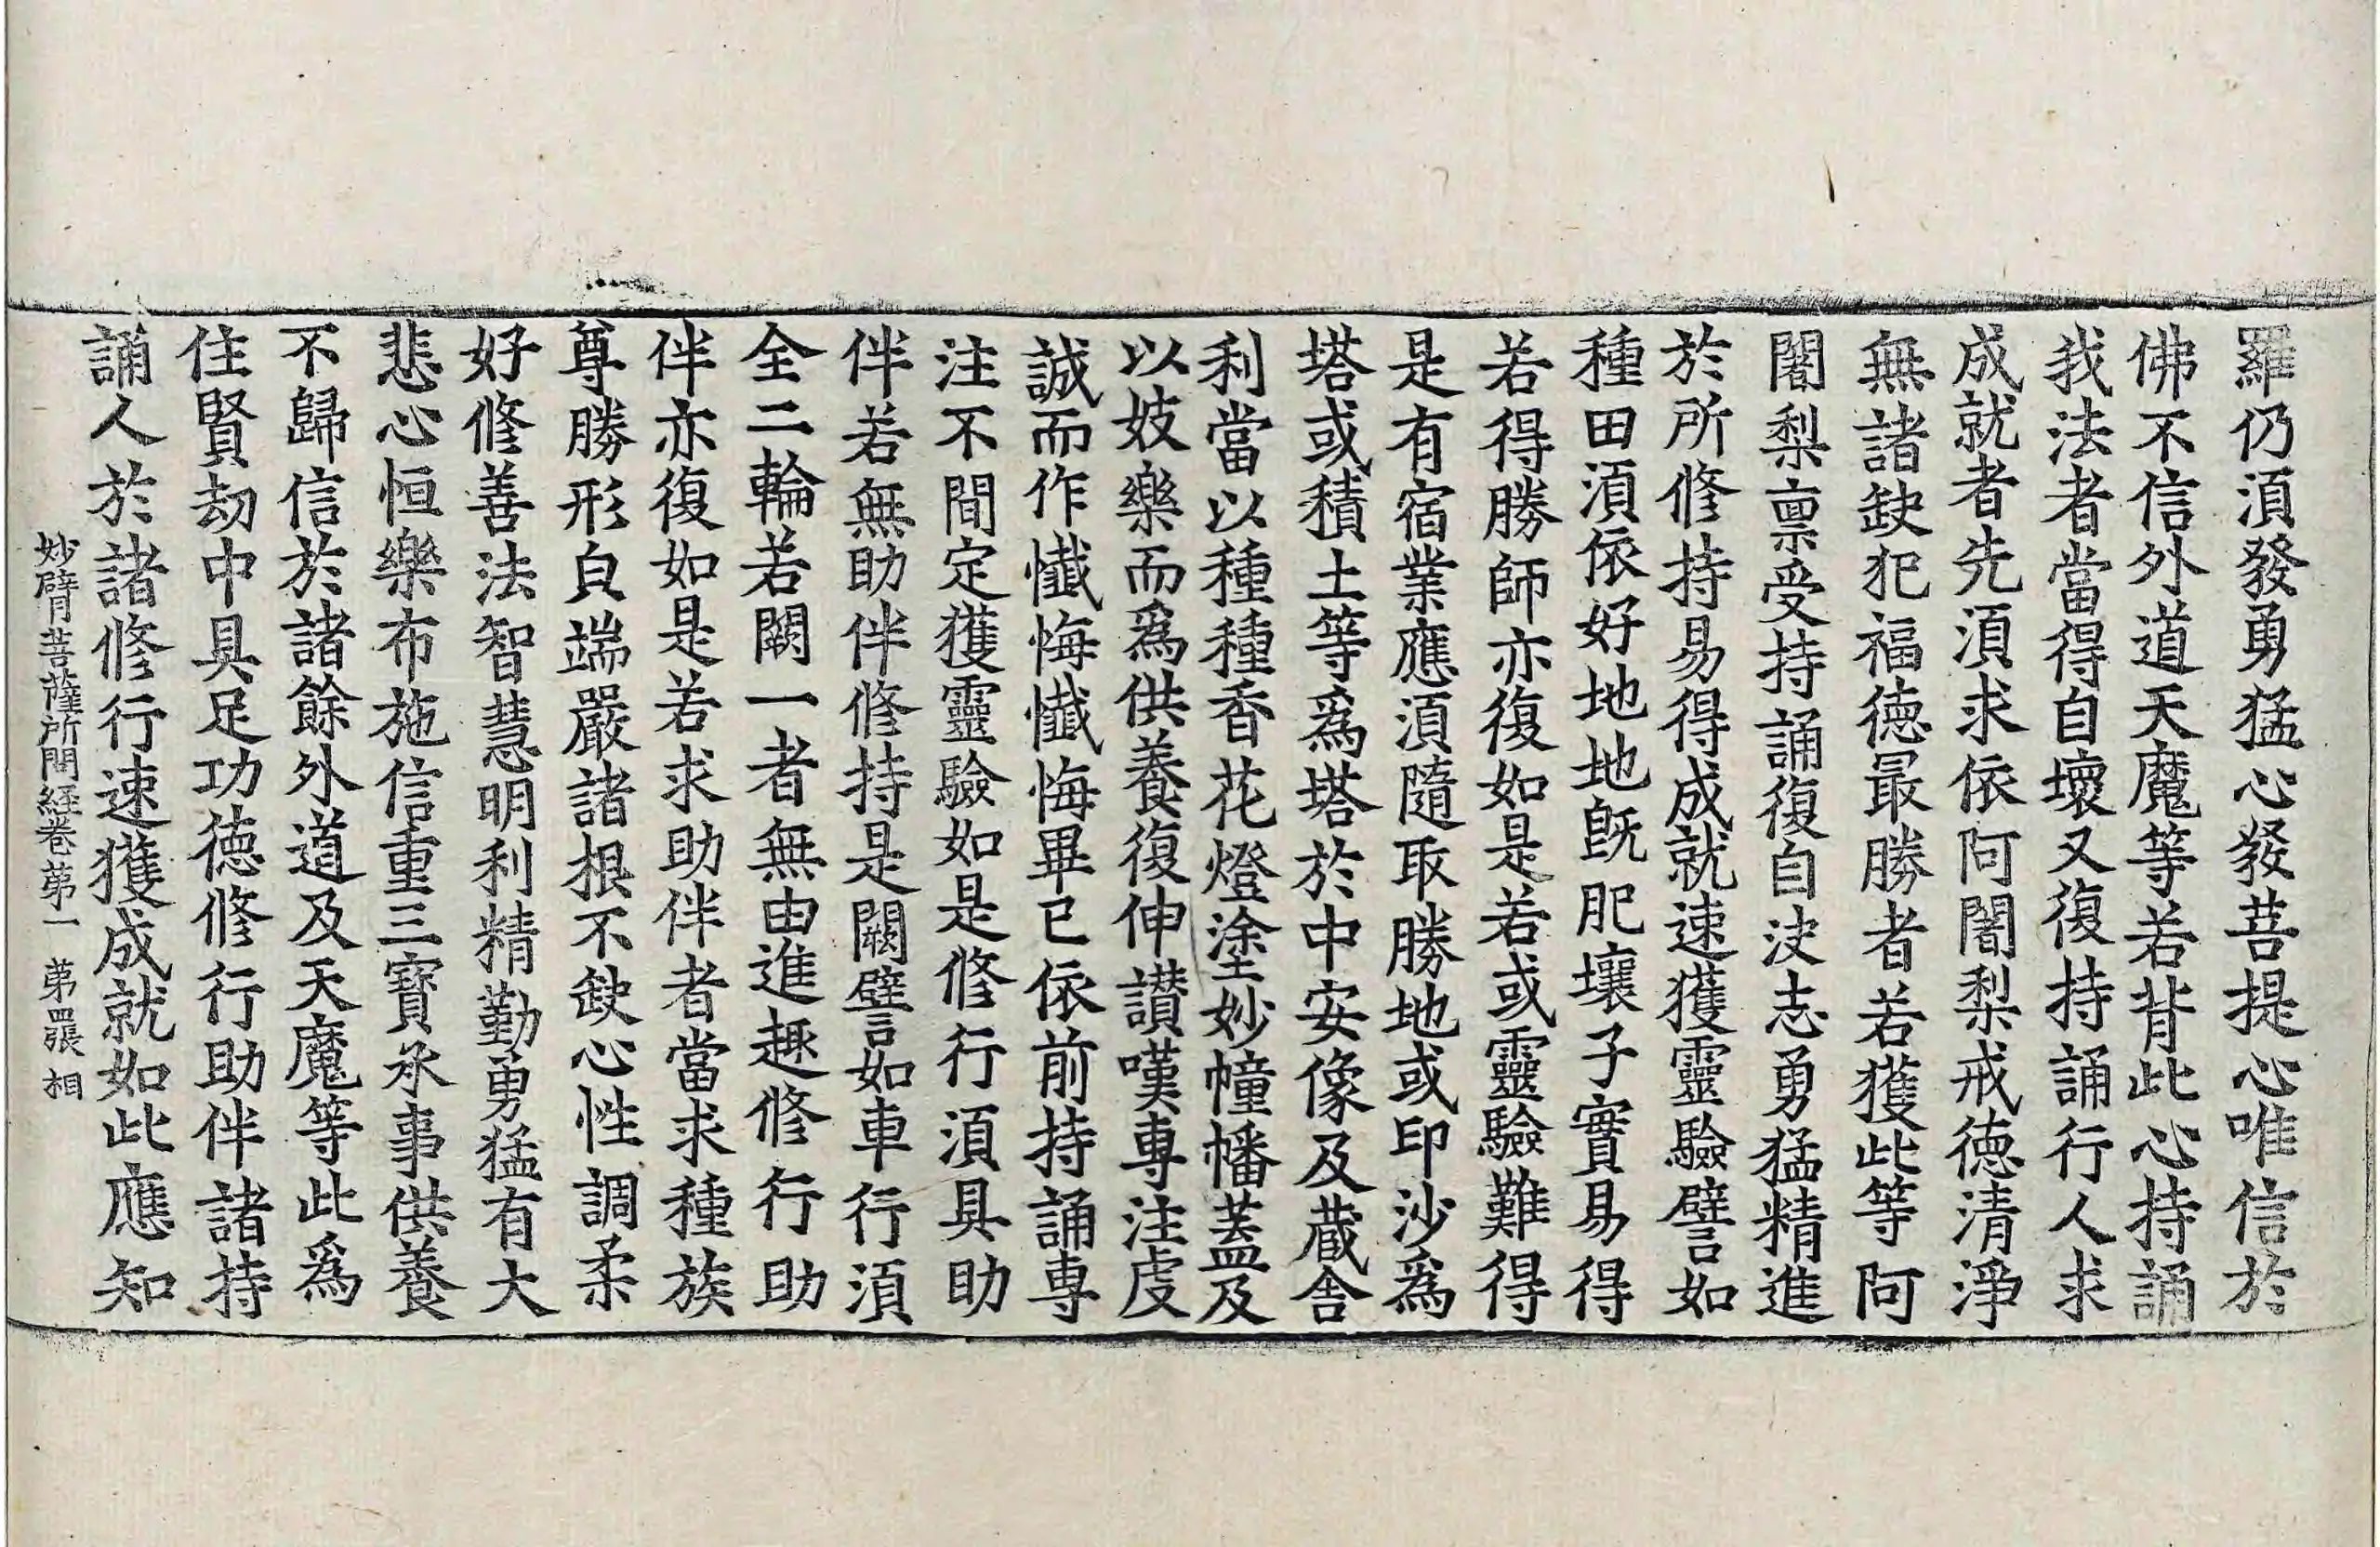 羅仍湏發勇猛心發菩提心唯信於
佛不信外道天魔等若背此心持誦
我法者當得自壞又復持誦行人求
成就者先湏求依阿闍梨戒德清淨
無諸缺犯福德最勝者若獲此等阿
闍梨禀受持誦復自决志勇猛精進
於所修持易得成就速獲靈驗譬如
種田湏依好地地既肥壤子實易得
若得勝師亦復如是若或靈驗難得
是有宿業應湏隨取勝地或印沙為
塔或積土等為塔於中安像及蔵舎
利當以種種香花燈塗妙幢幡蓋及
以妓樂而為供養復伸讃嘆專注虔
誠而作懺悔懺悔畢已依前持誦專
注不間定獲靈驗如是修行湏具助
伴若無助伴修持是闕譬如車行湏
全二輪若闕一者無由進趣修行助
伴亦復如是若求助伴者當求種族
尊勝形皃端嚴諸根不缺心性調柔
好修善法智慧明利精勤勇猛有大
悲心恒樂布施信重三寳承事供養
不歸信於諸餘外道及天魔等此為
住賢劫中具足功德修行助伴諸持
誦人於諸修行速獲成就如此應知
妙臂菩薩所問経卷苐一 苐四張 相